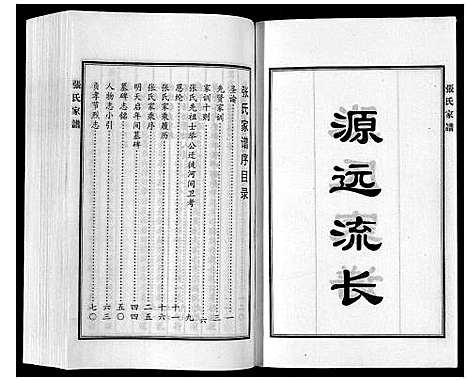 張氏家譜
源远流长
张氏家谱序目录
圣论 一
先贤家训 三
家训十则 六
张氏先祖士举公迁徙河间卫考 九
恩纶 十一
张氏家乘履历 十六
张氏家乘序 二五
明天启年间墓碑 四四
墓碑志铭 五〇
人物志小引 六三
贞孝节烈志 七〇
張氏家譜